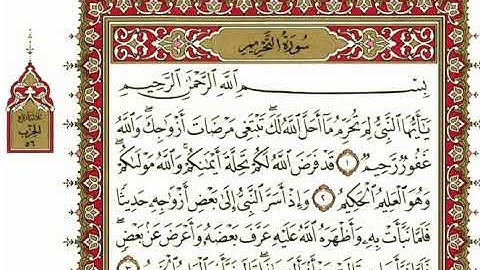 سُورَةُ التَّحْرِيمِ
بِسْمِ اللَّهِ الرَّحْمَٰنِ الرَّحِيمِ
يَا أَيُّهَا النَّبِيُّ لِمَ تُحَرِّمُ مَا أَحَلَّ اللَّهُ لَكَ تَبْتَغِي مَرْضَاتَ أَزْوَاجِكَ وَاللَّهُ
غَفُورٌ رَّحِيمٌ ١ قَدْ فَرَضَ اللَّهُ لَكُمْ تَحِلَّةَ أَيْمَانِكُمْ وَاللَّهُ مَوْلَاكُمْ
وَهُوَ الْعَلِيمُ الْحَكِيمُ ٢ وَإِذْ أَسَرَّ النَّبِيُّ إِلَىٰ بَعْضِ أَزْوَاجِهِ حَدِيثًا
فَلَمَّا نَبَّأَتْ بِهِ وَأَظْهَرَهُ اللَّهُ عَلَيْهِ عَرَّفَ بَعْضَهُ وَأَعْرَضَ عَن بَعْضٍ
الحزب
٥٦